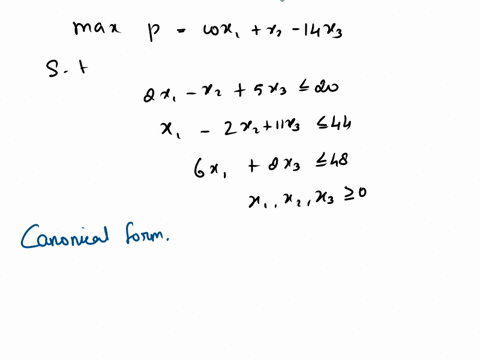 max p = 10x₁ + x₂ - 14x₃
S.t
2x₁ - x₂ + 5x₃ ≤ 20
x₁ - 2x₂ + 11x₃ ≤ 44
6x₁ + 8x₃ ≤ 48
x₁, x₂, x₃ ≥ 0
Canonical form.